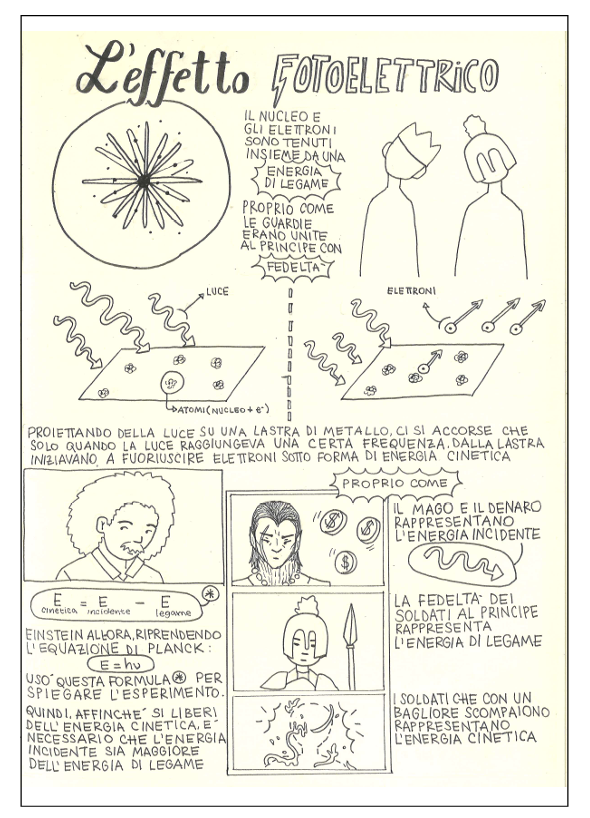 L'effetto FOTOELETTRICO
IL NUCLEO E
GLI ELETTRONI
SONO TENUTI
INSIEME DA UNA
ENERGIA
DI LEGAME
PROPRIO COME
LE GUARDIE
ERANO UNITE
AL PRINCIPE CON
FEDELTA'
LUCE
ATOMI (NUCLEO + e-)
ELETTRONI
PROIETTANDO DELLA LUCE SU UNA LASTRA DI METALLO, CI SI ACCORSE CHE
SOLO QUANDO LA LUCE RAGGIUNGEVA UNA CERTA FREQUENZA, DALLA LASTRA
INIZIAVANO A FUORIUSCIRE ELETTRONI SOTTO FORMA DI ENERGIA CINETICA
E cinetica = E incidente - E legame *
EINSTEIN ALLORA, RIPRENDENDO
L'EQUAZIONE DI PLANCK:
E = hν
USO' QUESTA FORMULA * PER
SPIEGARE L'ESPERIMENTO.
QUINDI, AFFINCHE' SI LIBERI
DELL'ENERGIA CINETICA, E'
NECESSARIO CHE L'ENERGIA
INCIDENTE SIA MAGGIORE
DELL'ENERGIA DI LEGAME
PROPRIO COME
$
$
$
IL MAGO E IL DENARO
RAPPRESENTANO
L'ENERGIA INCIDENTE
LA FEDELTA' DEI
SOLDATI AL PRINCIPE
RAPPRESENTA
L'ENERGIA DI LEGAME
I SOLDATI CHE CON UN
BAGLIORE SCOMPAIONO
RAPPRESENTANO
L'ENERGIA CINETICA